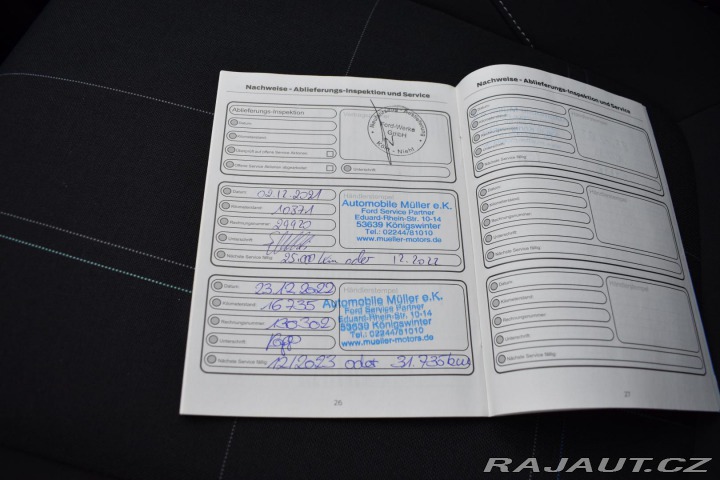 Nachweise - Ablieferungs-Inspektion und Service
Ablieferungs-Inspektion
Datum
Kilometerstand
Überprüft auf offene Service-Aktionen
Offene Service-Aktionen durchgeführt
Unterschrift
Ford-Werke
GmbH
Köln - Niehl
Datum 02.12.2021
Kilometerstand 10371
Rechnungsnummer 29920
Unterschrift
Nächste Service fällig 25.000 km oder 12.2022
Händlerstempel
Automobile Müller e.K.
Ford Service Partner
Eduard-Rhein-Str. 10-14
53639 Königswinter
Tel.: 02244/81010
www.mueller-motors.de
Datum 23.12.2022
Kilometerstand 16735
Rechnungsnummer 130302
Unterschrift
Nächste Service fällig 12/2023 oder 31.735 km
Händlerstempel
Automobile Müller e.K.
Ford Service Partner
Eduard-Rhein-Str. 10-14
53639 Königswinter
Tel.: 02244/81010
www.mueller-motors.de
26
Nachweise - Ablieferungs-Inspektion und Service
Datum
Kilometerstand
Rechnungsnummer
Unterschrift
Nächste Service fällig
Datum
Kilometerstand
Rechnungsnummer
Unterschrift
Nächste Service fällig
Händlerstempel
Datum
Kilometerstand
Rechnungsnummer
Unterschrift
Nächste Service fällig
Händlerstempel
27
RAJAUT.CZ